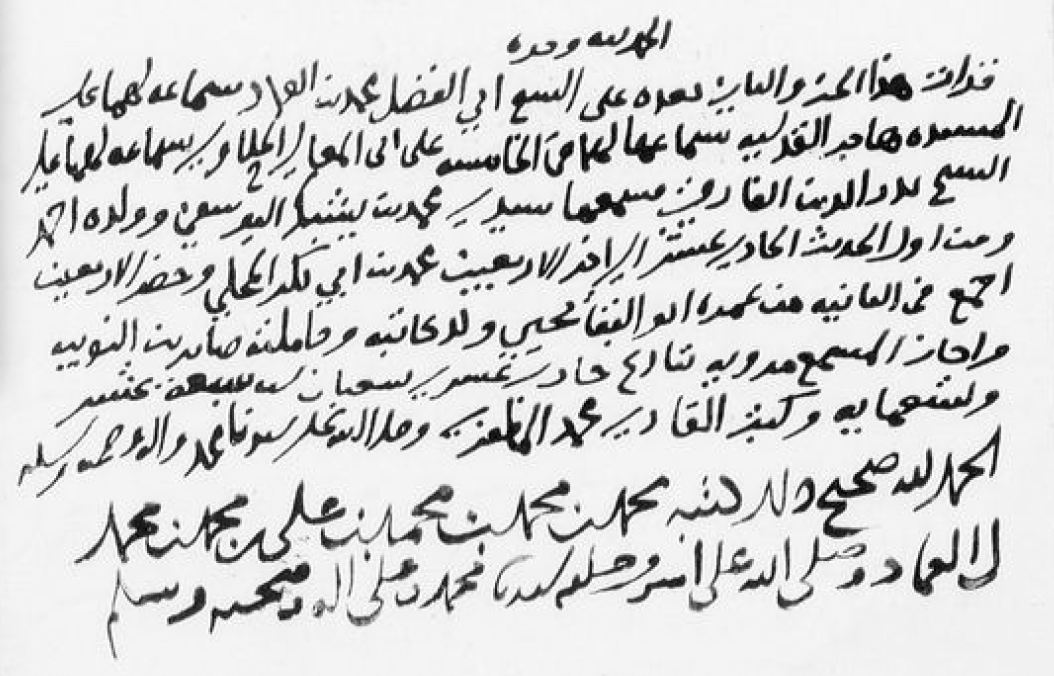 الحمد لله وحده
قرأت هذا الجزء والبان بعده على الشيخ ابي الفضل محمد بن العماد سماعه لهما على
المسنده هاجر القدسيه سماعها لهما في الخامسه على ابي المعالي الحلاوي سماعه لهما على
الشيخ بدر الدين الفارقي فسمعهما سيدي محمد بن يشبك اليوسفي وولده احمد
ومن اول الحديث الحادي عشر الى اخر الاربعين محمد بن ابي بكر المحلي وحضر الاربعين
اجمع في الثانيه من عمره ابو البقا يحيى ولد كاتبه وحاملته صابرين النوبيه
واجاز المسمع مرويه بتاريخ حادي عشري شعبان سنه سبعة عشر
وتسعمايه وكتب القاري محمد المظفري وصلى الله على سيدنا محمد واله وصحبه وسلم
الحمد لله صحيح ذلك كتبه محمد بن محمد بن محمد بن علي بن محمد بن محمد
بن العماد وصلى الله على سيدنا محمد وعلى اله وصحبه وسلم